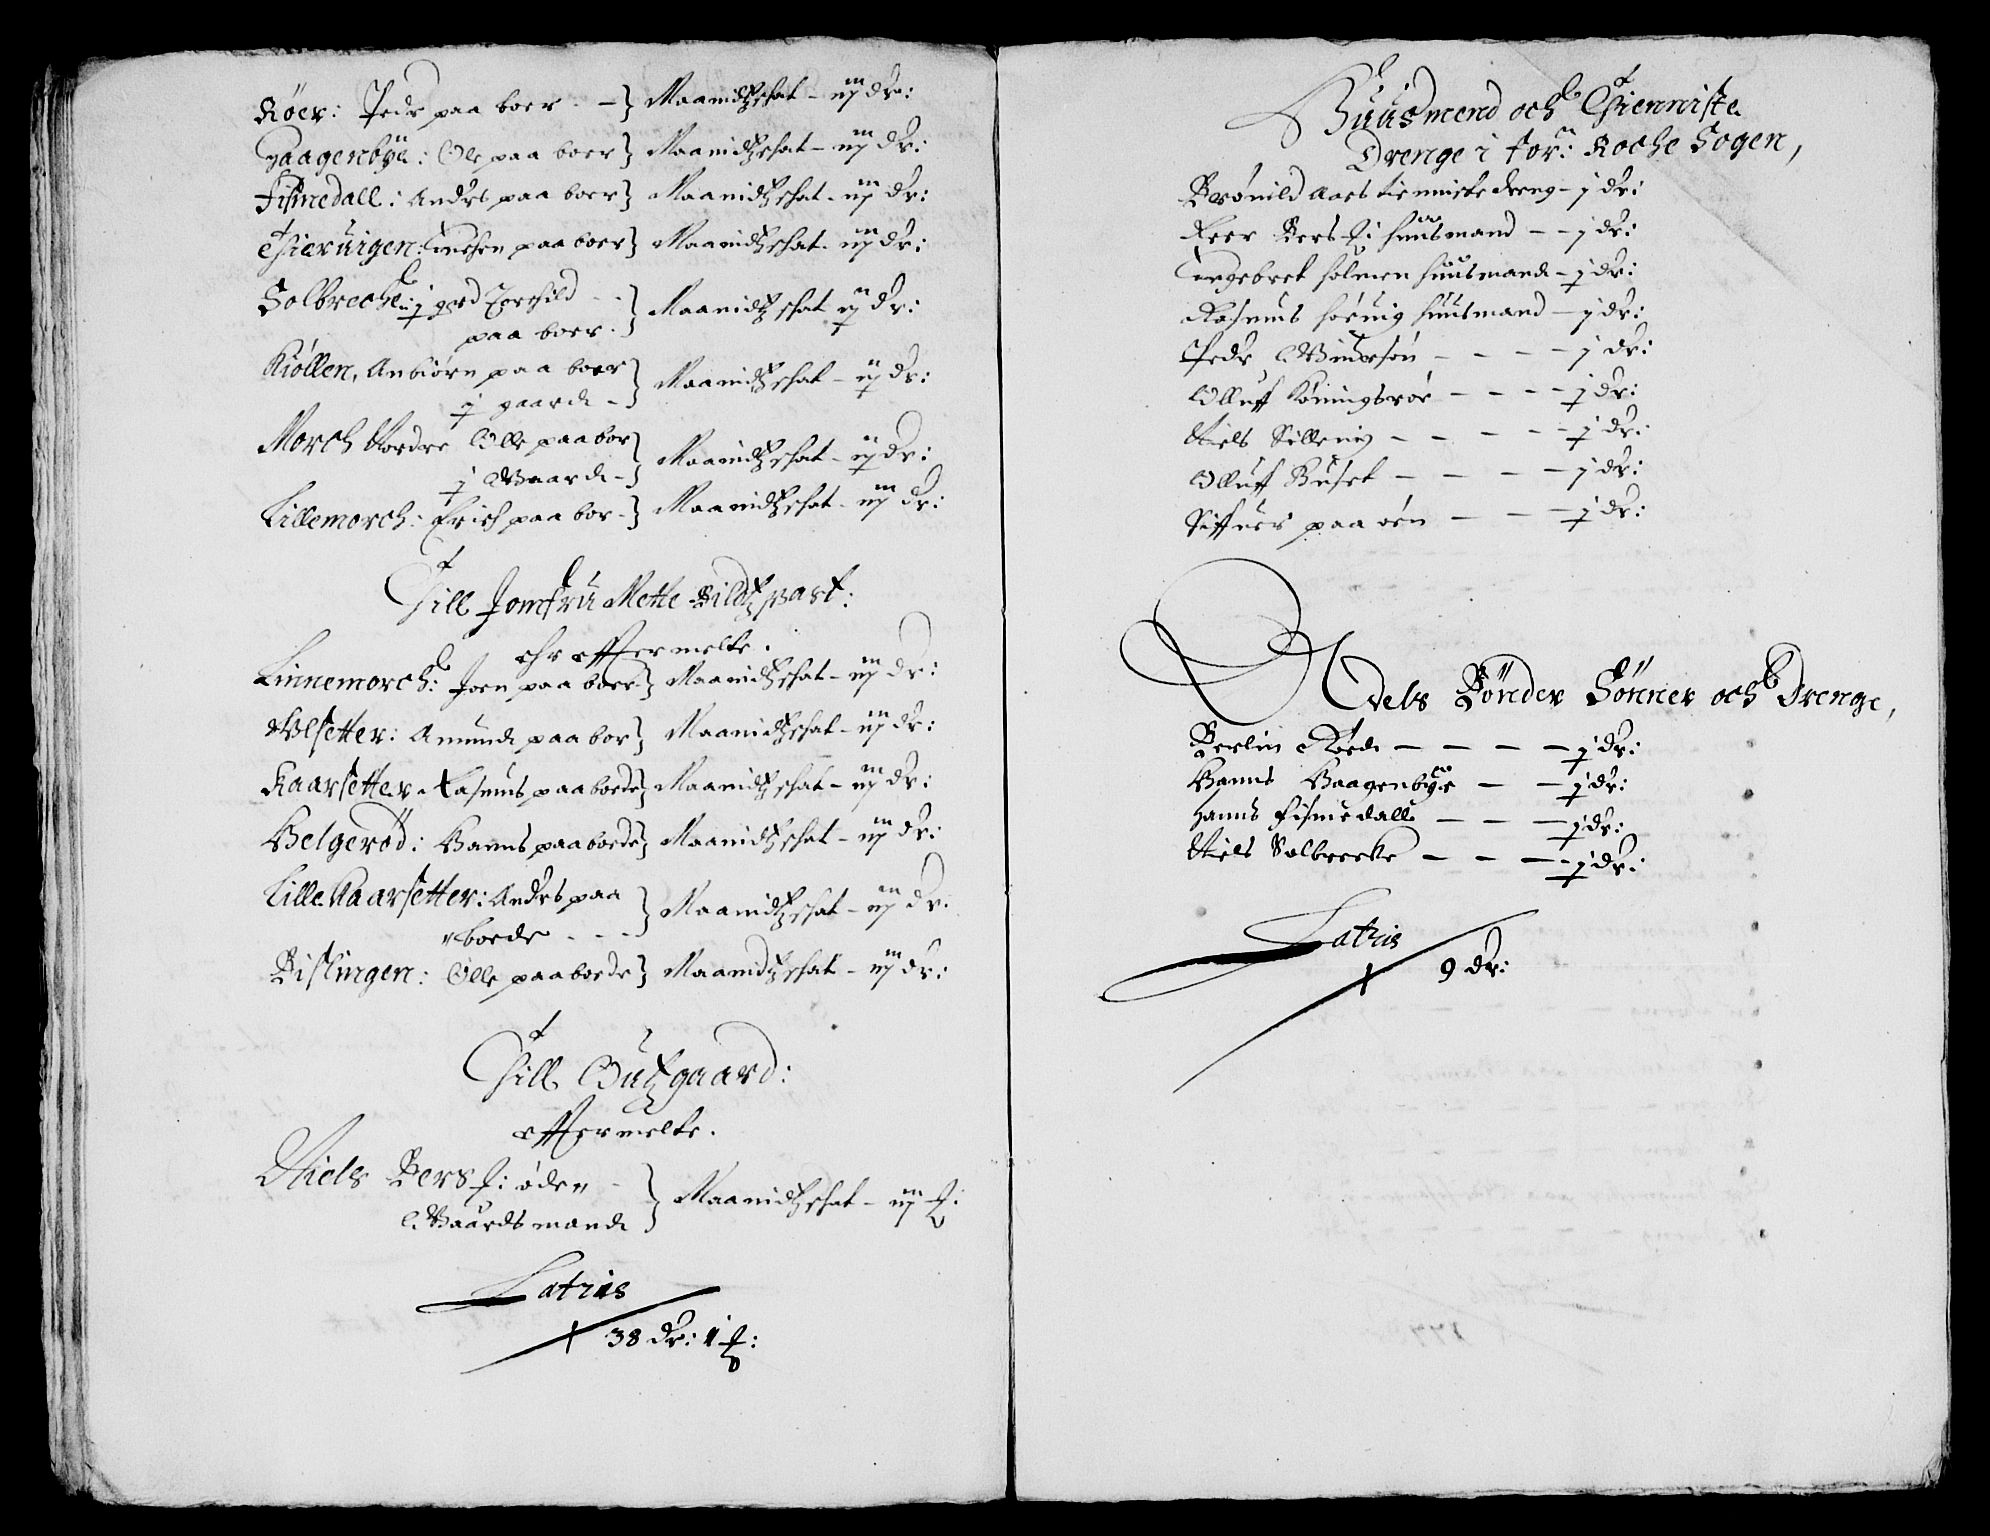 Röer: Pedr paa boer – } Maanidtzschat – iij dr:
Haagenbye: Ole paa boer } Maanidtzschat – iij dr:
Fismedall: Andrs paa boer } Maanidtzschat – iij dr:
Thieruigen: paa boer } Maanidtzschat – iij dr:
Solbreche: j gord Torchild – }
paa boer. } Maanidtzschat ij dr:
Kiöllen, Anbiörn paa boer }
j gaardt – } Maanidtzschat – ij dr:
Morch Nordre Olle paa bor }
j Gaardt – } Maanidtzschat – ij dr:
Lillemorch: Erich paa bor – } Maanidtzschat – iij dr:
Till Jomfru Mette Bildtz part:
chr effterneltt.
Linnemorch: Joen paa boer } Maanidtzschat – iij dr:
Ulsetter: Amundt paa bor } Maanidtzschat – iij dr:
Kaarsetter: Rasmus paa boede } Maanidtzschat – iij dr:
Helgeröd: Hanns paa boede } Maanidtzschat – iij dr:
Lille Kaarsetter: Andrs paa
boede – – } Maanidtzschat – iij dr:
Bislingen: Olle paa boede } Maanidtzschat – iij dr:
Till gaard:
effterneltt.
Niels Bers öde –
Gaardsmandt } Maanidtzschat – iij
Latris
38 dr: 1
Huusmend och Thienniste
Drenge i for: Roche Sogen,
Brönild Aaes tienniste dreng – j dr:
Peer Bers huusmand – – j dr:
Engebret holmen huusmandt – j dr:
Rasmus huusmand – j dr:
Pedr – – – – j dr:
Olluff Köningsröe – – – j dr:
Niels Silleuig – – – – j dr:
Olluff Huset – – – – j dr:
Siffuer paa öen – – – j dr:
Odels Bönder Sönner och Drenge,
Berlin Röedt – – – – j dr:
Hanns Haagenbye – – j dr:
Hanns Fismedall – – – j dr:
Niels Solbrecke – – – j dr:
Latris
9 dr: